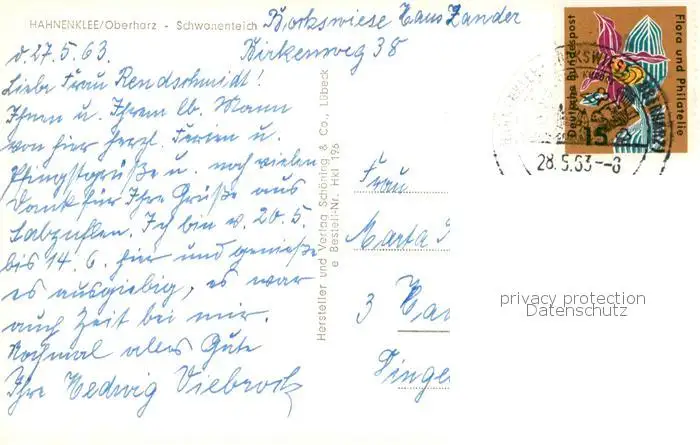 HAHNENKLEE/Oberharz - Schwanenteich
Bockswiese Haus Zander
Birkenweg 38
d. 27.5.63.
Liebe Frau Rendschmidt!
Ihnen u. Ihrem lb. Mann
von hier herzl. Ferien u.
Pfingstgrüße u. noch vielen
Dank für Ihre Grüße aus
Ich bin v. 20.5.
bis 14.6. hier und genieße
es ausgiebig, es war
auch Zeit bei mir.
Nochmal alles Gute
Ihre Hedwig Viebrock
Hersteller und Verlag Schöning & Co., Lübeck
Bestell-Nr. Hkl 196
Frau
Marta
3 Han
Deutsche Bundespost
Flora und Philatelie
15
28.5.63--8
privacy protection
Datenschutz